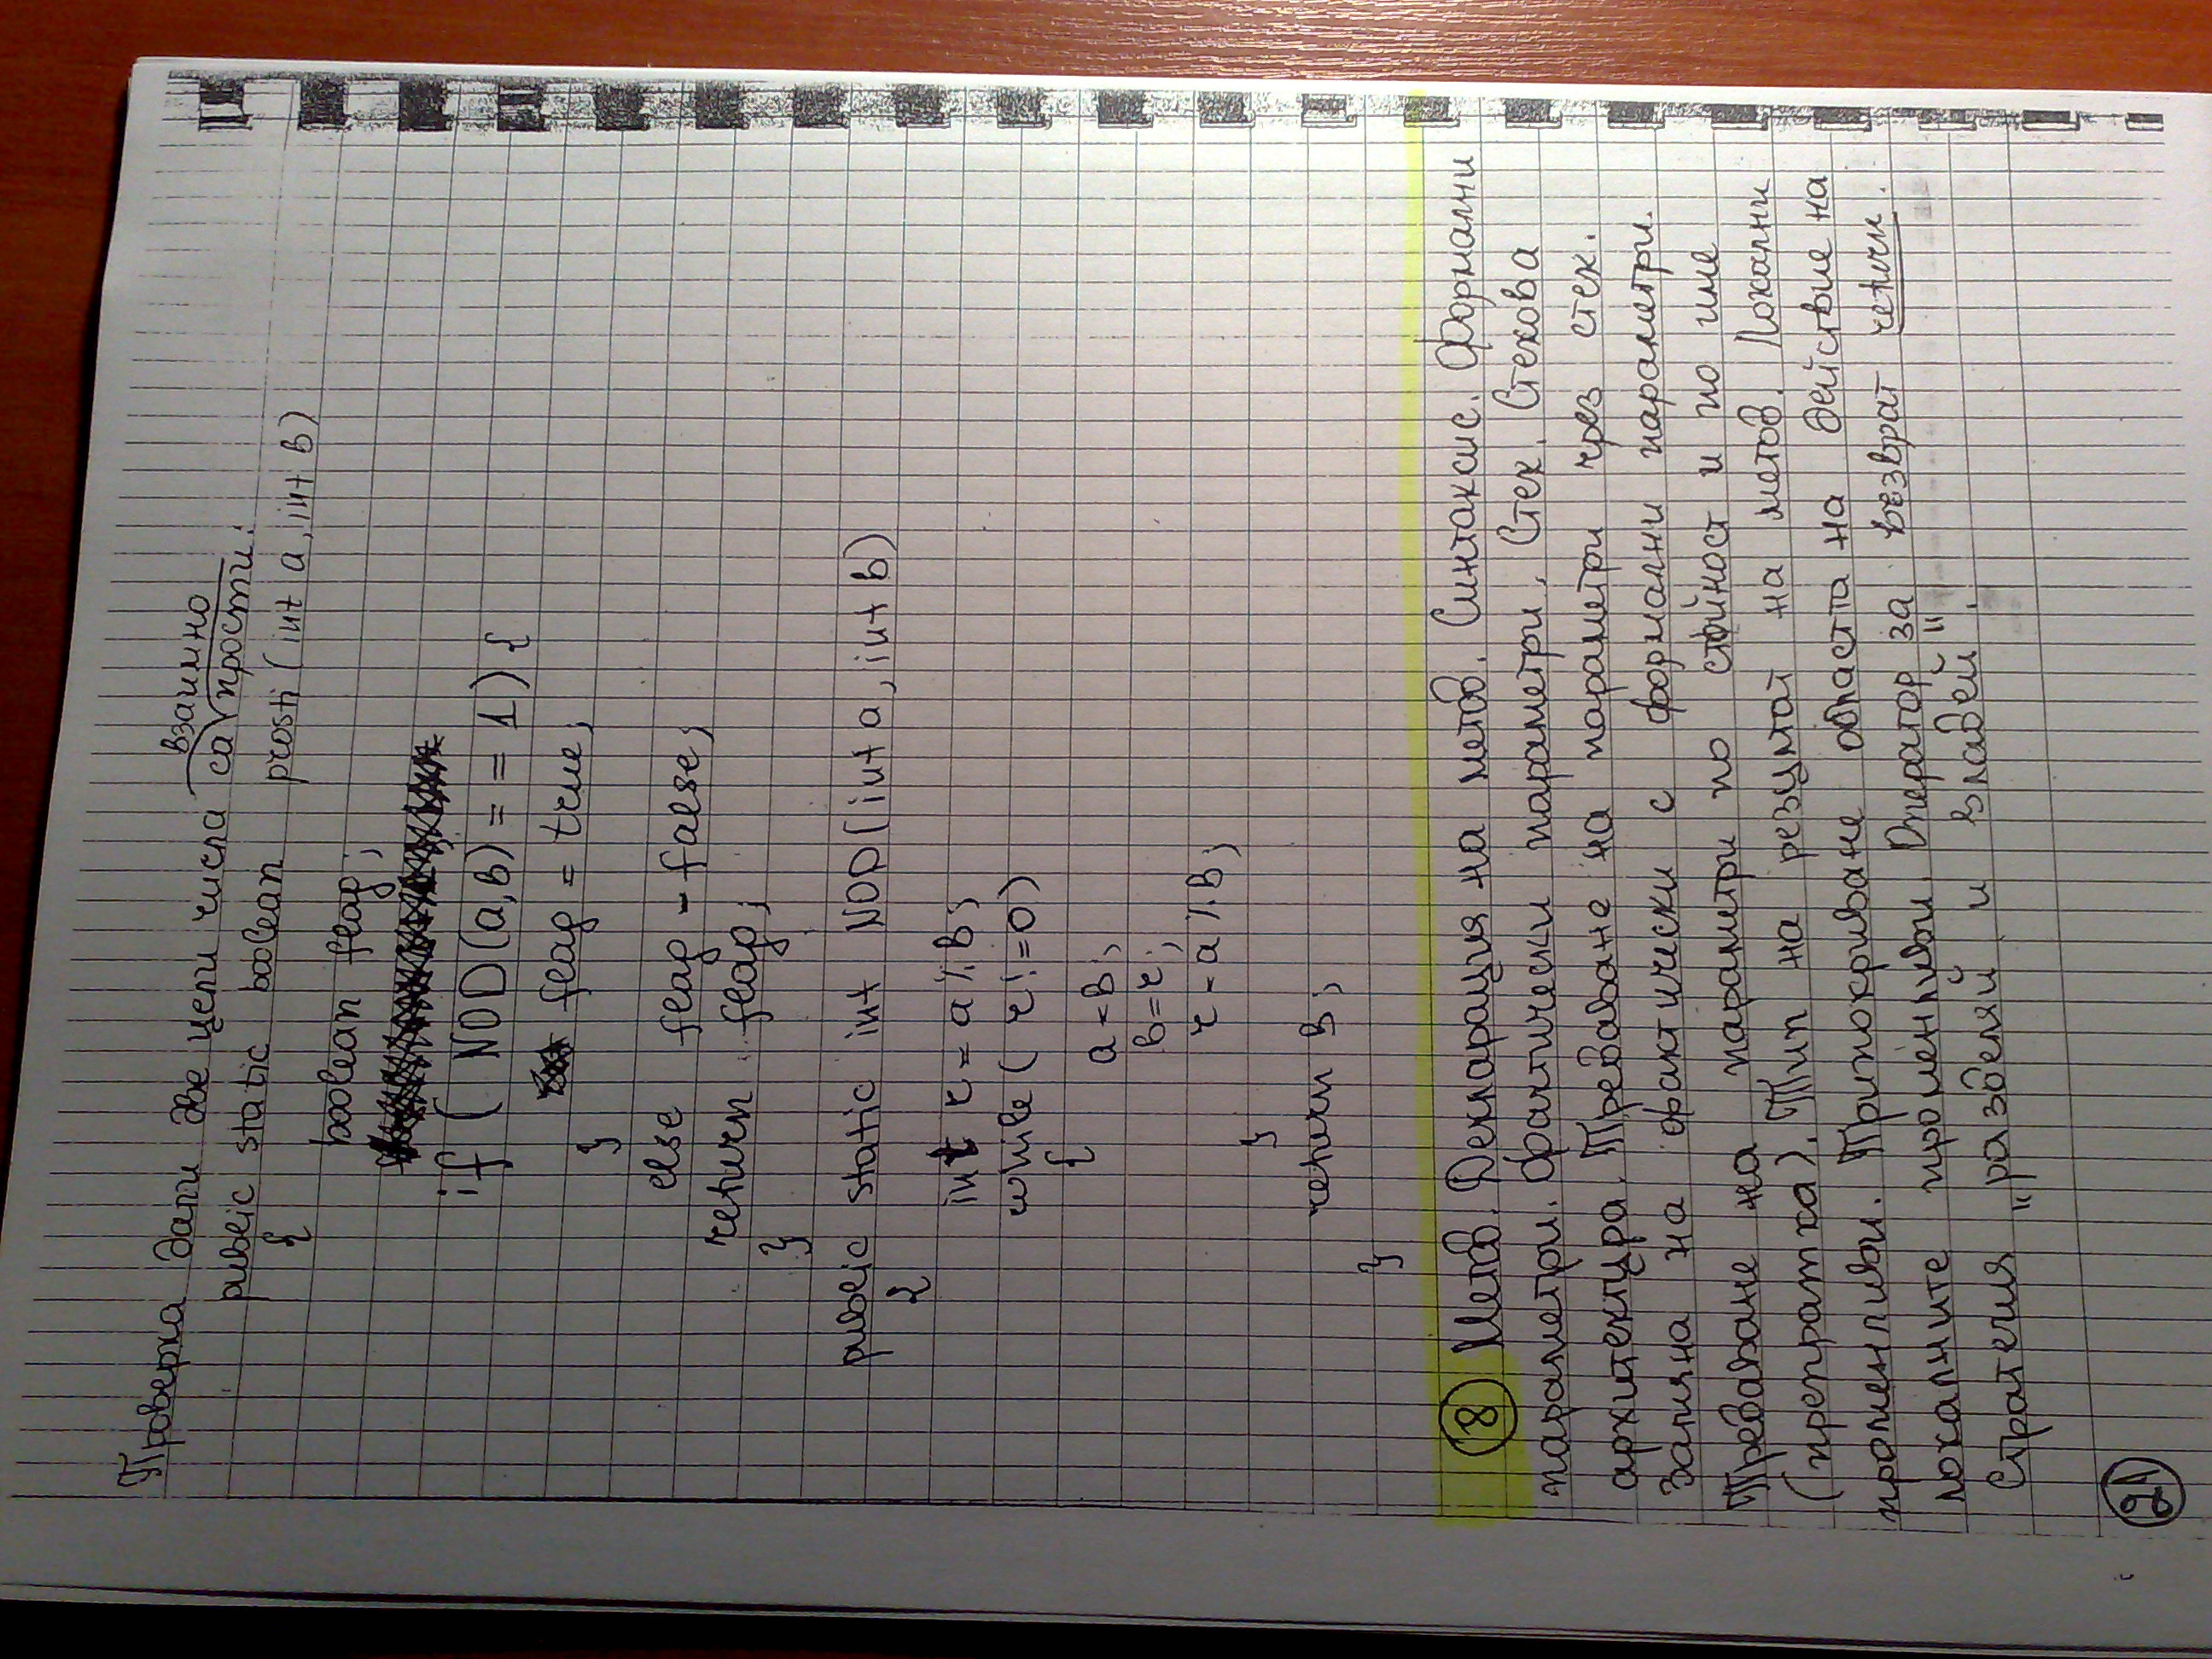 Проверка дали две цели числа са взаимно прости.
public static boolean prosti (int a, int b)
{
boolean flag;
if (NOD(a,b) == 1) {
flag = true;
}
else flag = false;
return flag;
}
public static int NOD(int a, int b)
{
int r = a % b;
while (r != 0)
{
a = b;
b = r;
r = a % b;
}
return b;
}
18 Метод. Декларация на метод. Синтаксис. Формални
параметри. Фактически параметри. Стек. Стекова
архитектура. Предаване на параметри чрез стек.
Замяна на фактически с формални параметри.
Предаване на параметри по стойност и по име
(препратка). Тип на резултат на метод. Локални
променливи. Припокриване областта на действие на
локалните променливи. Оператор за възврат
Стратегия "разделяй и владей".
24